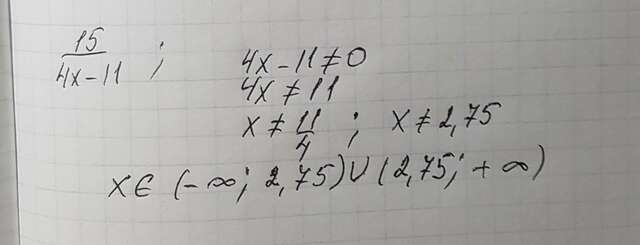 15/(4x-11) ; 4x-11≠0
4x≠11
x≠11/4 ; x≠2,75
x∈(-∞; 2,75)∪(2,75; +∞)